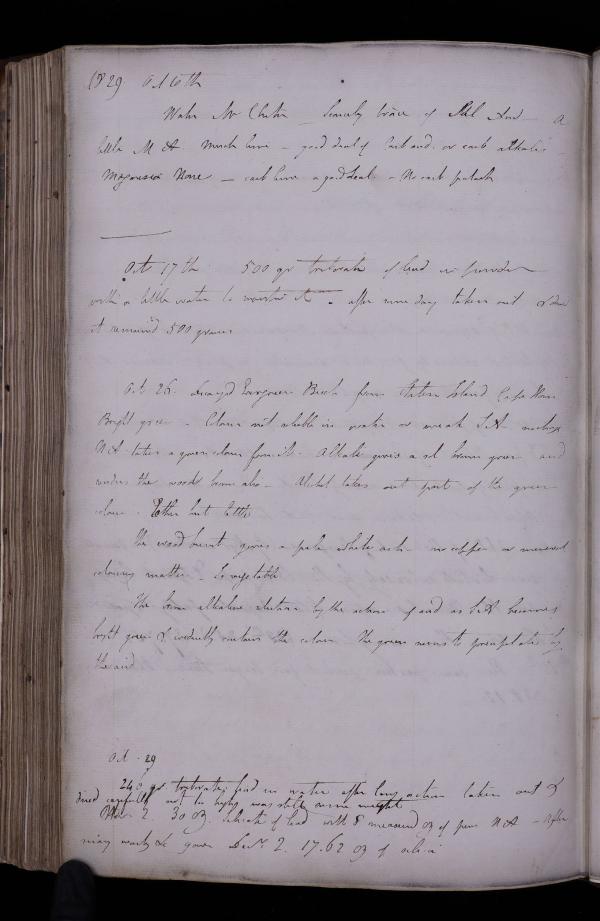 1829 Oct 16th
Water Mr — Scarcely trace of Sul Acid — A
little M A. Much lime — good deal of Carb and. or carb alkali
Magnesia None — carb lime a good deal — No carb potash
Oct 17th 500 gr triborate of lead in powder
with a little water to — after nine day taken out & dried
it remained 500 grains
Oct 26. decayed Evergreen Beech from Staten Island Cape Horn
Bright green — Colour not soluble in water or weak S A
N A takes a green colour from it. Alkali gives a brown green and
renders the wood brown also. Alcohol takes out part of the green
colour. Ether but little
The wood burnt gives a pale white ash — no copper or mineral
colouring matter — Is vegetable
The brown alkaline solution by the action of acid as S A becomes
bright green & evidently contains the colour. The green seems to precipitate by
the acid
Oct. 29
24 gr. triborate lead in water after long action taken out &
dried carefully not too highly was still same weight
Nov 2. 30 oz. silicate of lead with 8 measured oz of pure N A — after
many wash & gave Decr 2. 17.62 oz of silica